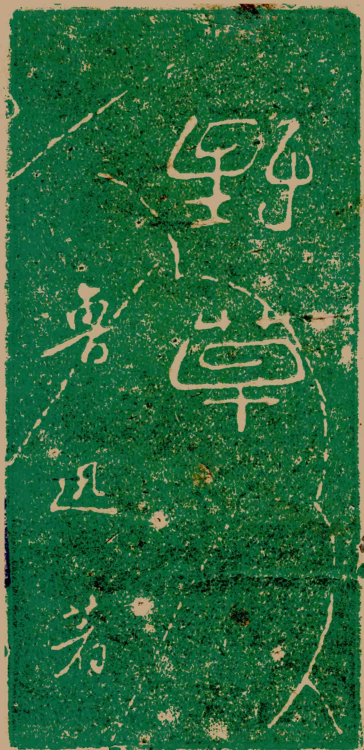 野草
魯迅著